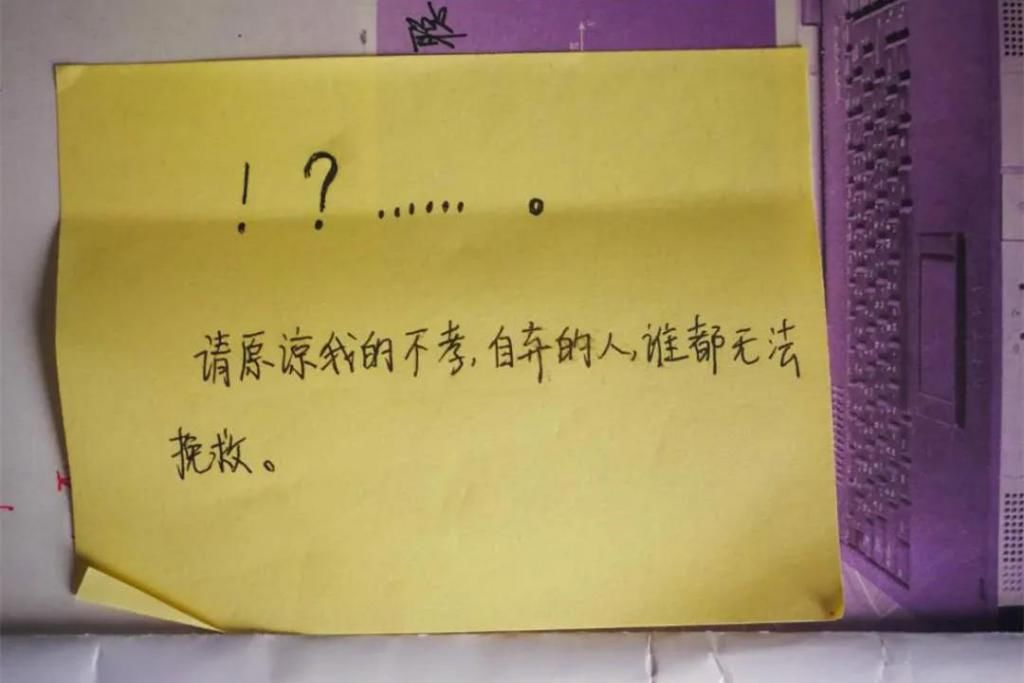 !?……。
请原谅我的不孝,自弃的人,谁都无法
挽救。